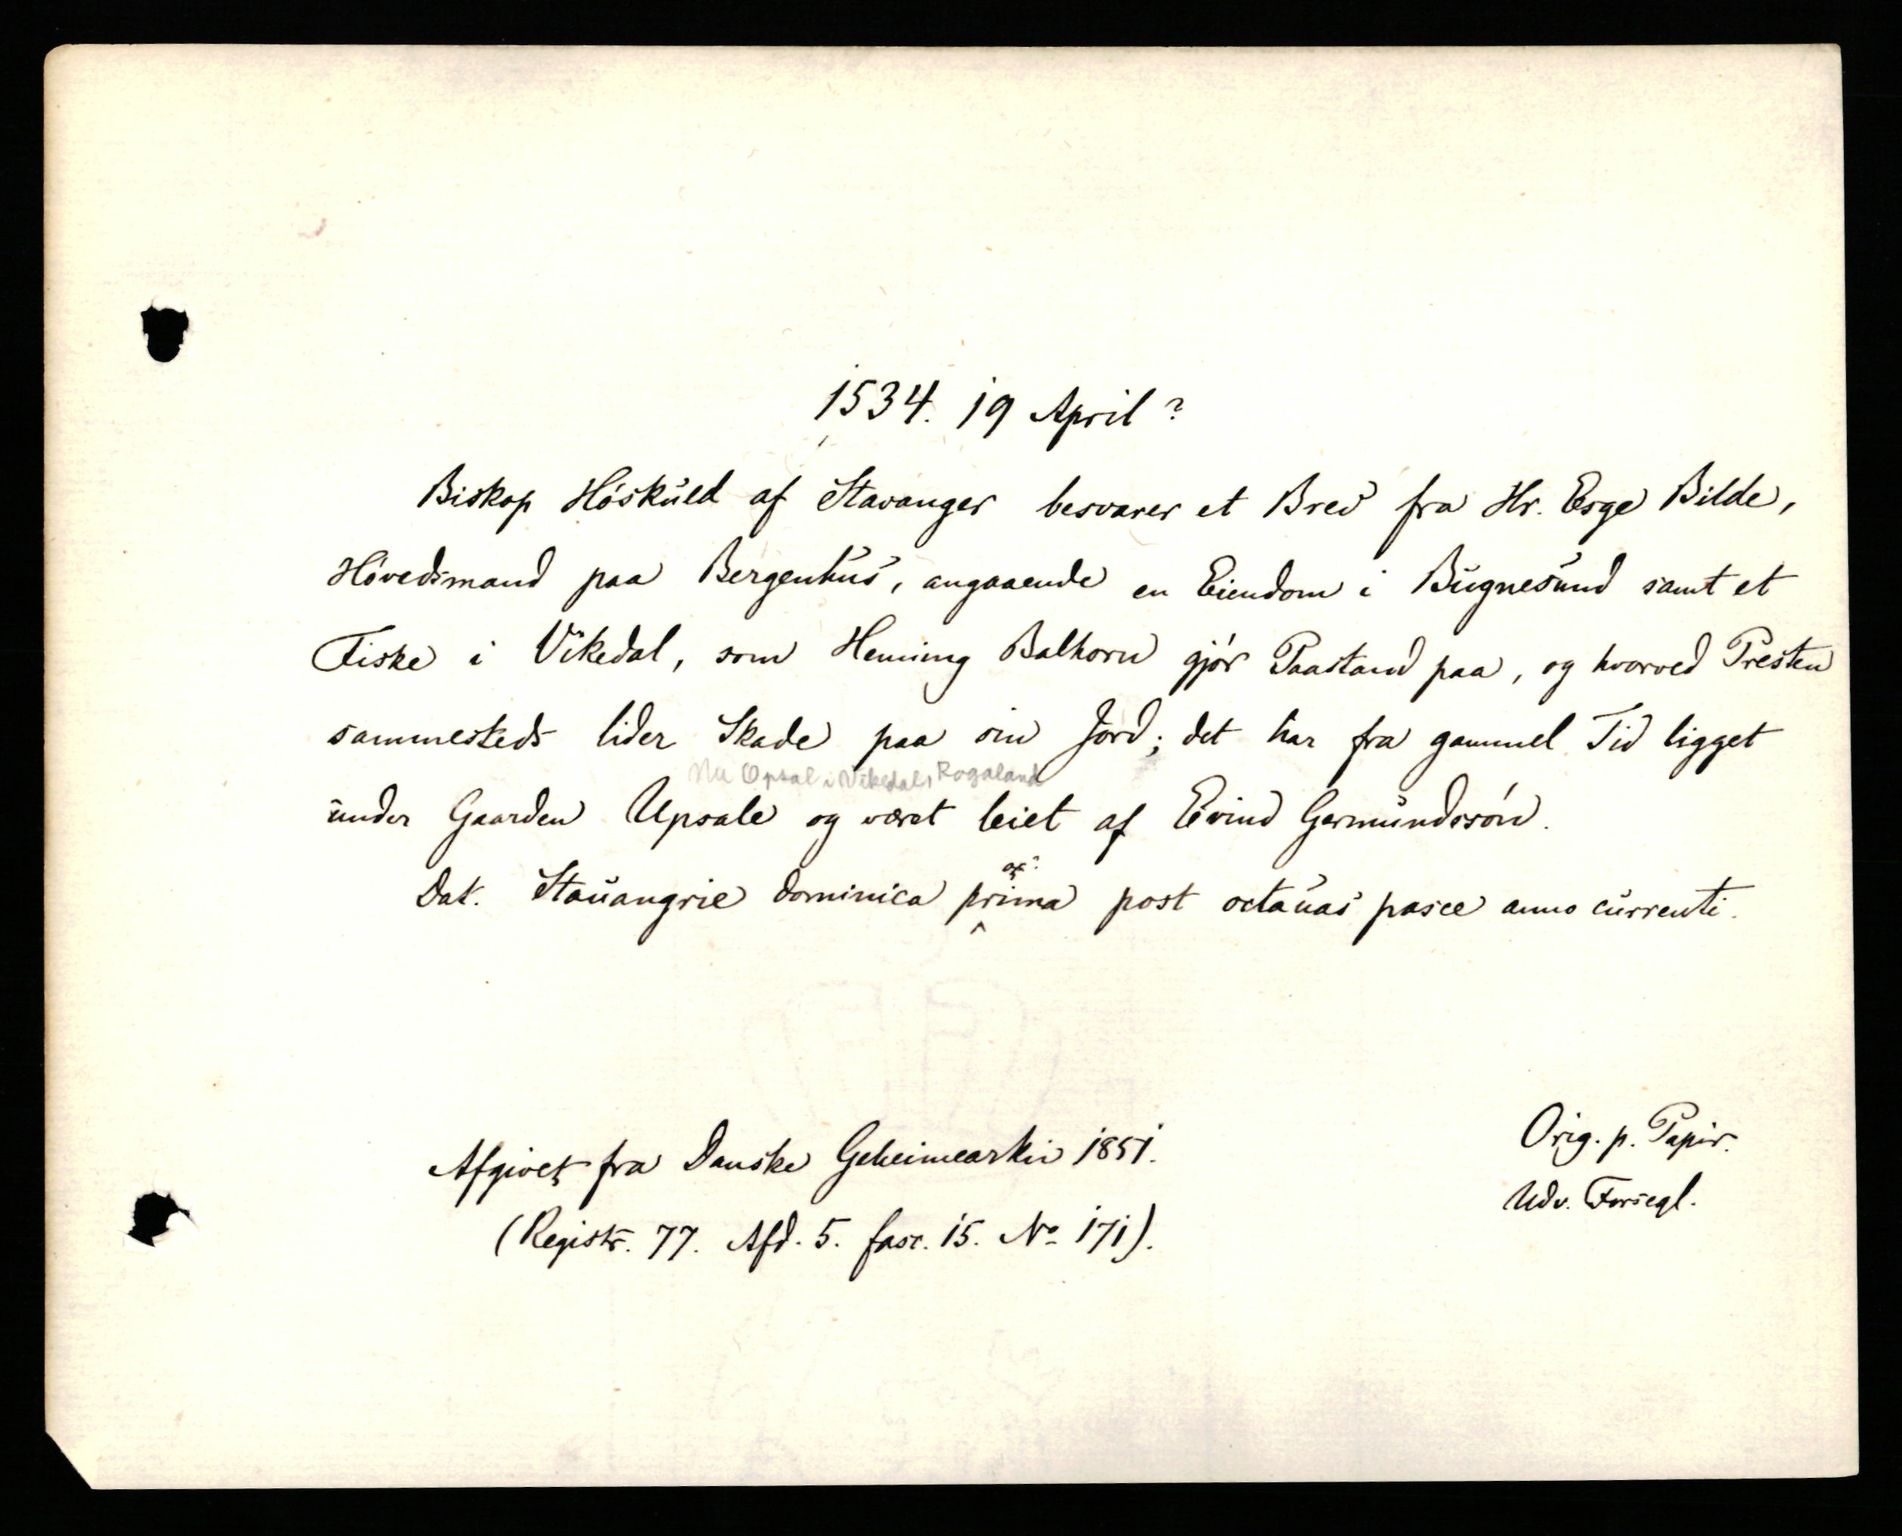 1534. 19 April?
Biskop Höskuld af Stavanger besvarer et Brev fra Hr. Esge Bilde,
Hövedsmand paa Bergenhus, angaaende en Eiendom i Bugnesund samt et
Fiske i Vikedal, som Heming Balhorn gjör Paastand paa, og hvorved Presten
sammesteds lider Skade paa sin Jord; det har fra gammel Tid ligget
Nu Opsal i Vikedal, Rogaland
under Gaarden Upsale og været leiet af Evind Germundssön.
Dat. Stauangrie dominica prima post octauas pasce anno currenti.
Afgivet fra Danske Geheimearkiv 1851.
(Registr. 77. Afd. 5. fasc. 15. No 171).
Orig. p. Papir.
Udv. Forsegl.